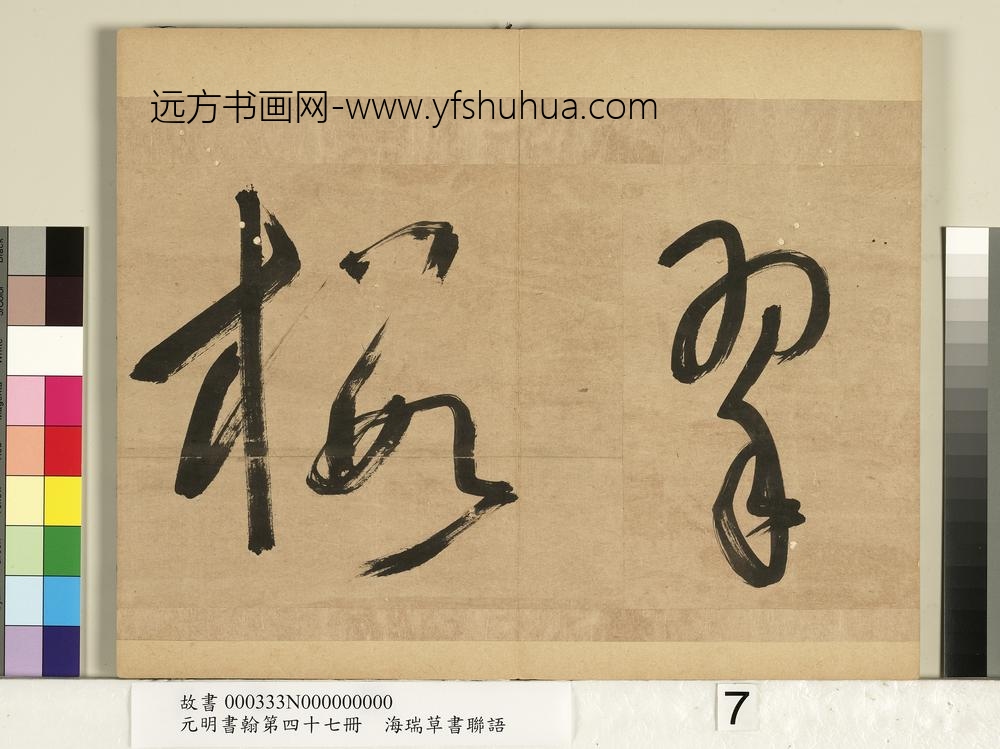 远方书画网-www.yfshuhua.com
翠
故書 000333N000000000
元明書翰第四十七冊　海瑞草書聯語
7